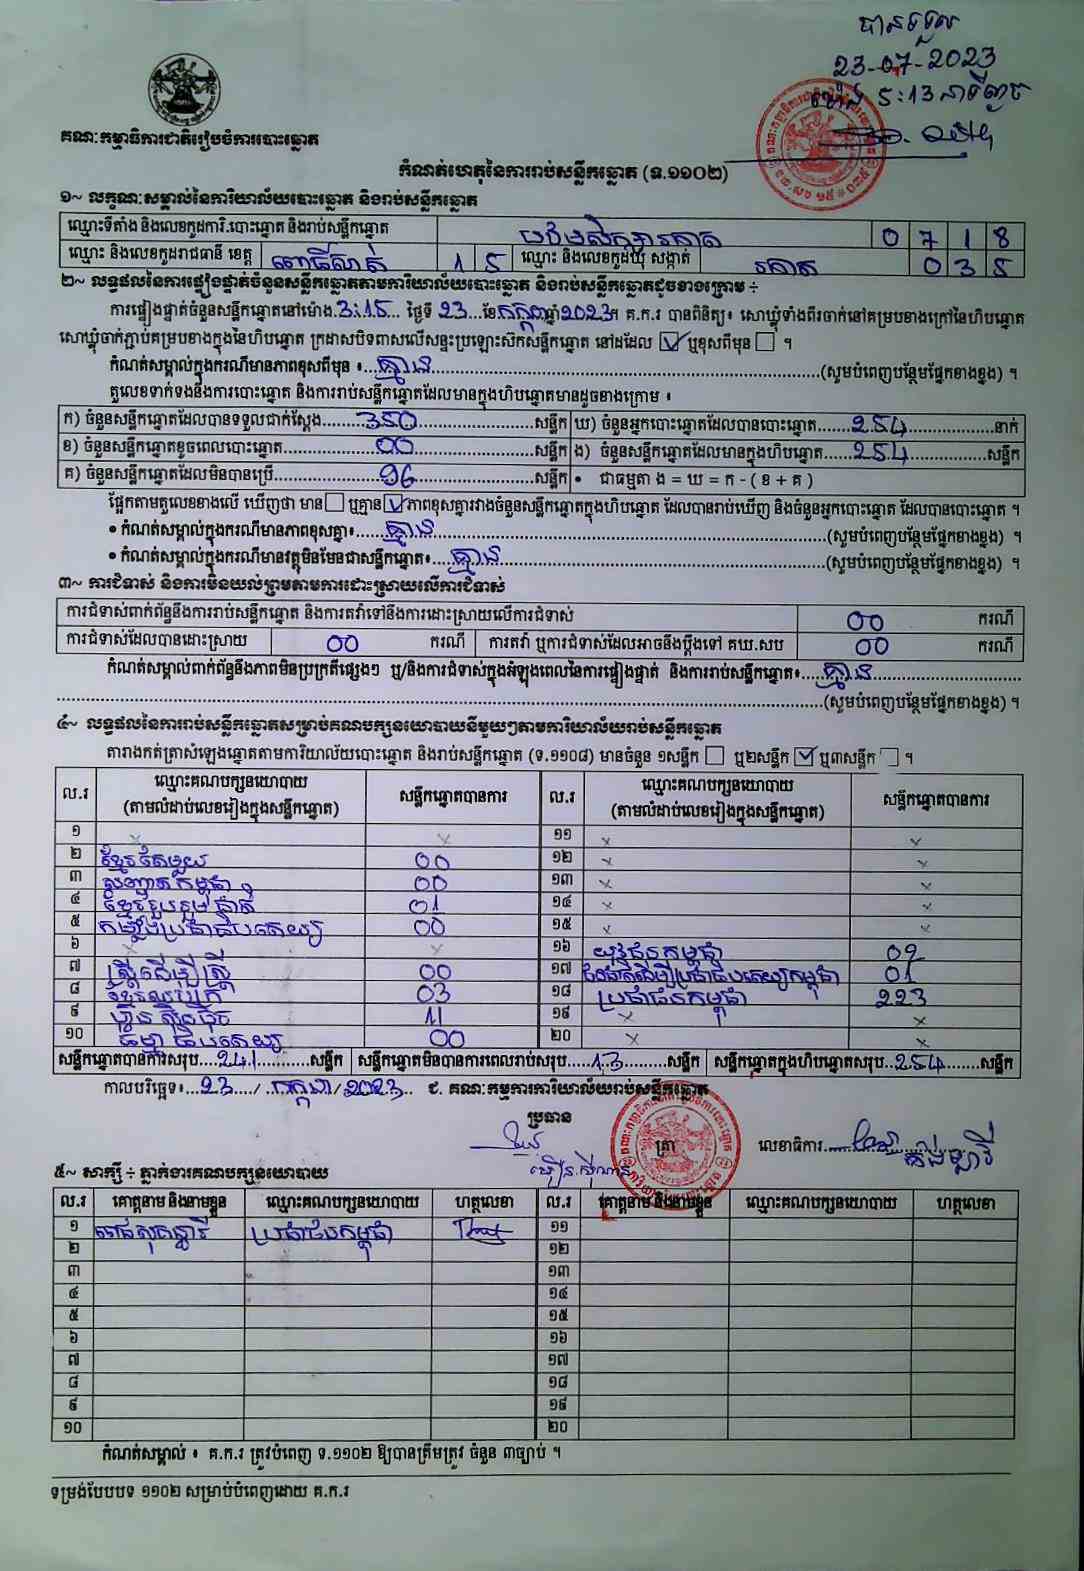 បានទទួល
23-07-2023
ម៉ោង 5:13 នាទីល្ងាច
គណៈកម្មាធិការជាតិរៀបចំការបោះឆ្នោត
កំណត់ហេតុនៃការរាប់សន្លឹកឆ្នោត (ទ.១១០២)
១~ លក្ខណៈសម្គាល់នៃការិយាល័យបោះឆ្នោត និងរាប់សន្លឹកឆ្នោត
ឈ្មោះទីតាំង និងលេខកូដការិ.បោះឆ្នោត និងរាប់សន្លឹកឆ្នោត 0 7 1 8
ឈ្មោះ និងលេខកូដរាជធានី ខេត្ត ពោធិ៍សាត់ 1 5 ឈ្មោះ និងលេខកូដឃុំ សង្កាត់ រកាត 0 3 5
២~ លទ្ធផលនៃការផ្ទៀងផ្ទាត់ចំនួនសន្លឹកឆ្នោតតាមការិយាល័យបោះឆ្នោត និងរាប់សន្លឹកឆ្នោតដូចខាងក្រោម ÷
ការផ្ទៀងផ្ទាត់ចំនួនសន្លឹកឆ្នោតនៅម៉ោង 3:15 ថ្ងៃទី 23 ខែកក្កដា ឆ្នាំ2023។ គ.ក.រ បានពិនិត្យ៖ សោឃ្លុំទាំងពីរចាក់នៅគម្របខាងក្រៅនៃហិបឆ្នោត
សោឃ្លុំចាក់ភ្ជាប់គម្របខាងក្នុងនៃហិបឆ្នោត ក្រដាសបិទពាសលើសន្ទះប្រឡោះស៊កសន្លឹកឆ្នោត នៅដដែល ✓ ឬខុសពីមុន ។
កំណត់សម្គាល់ក្នុងករណីមានភាពខុសពីមុន ៖ គ្មាន (សូមបំពេញបន្ថែមផ្នែកខាងខ្នង) ។
តួលេខទាក់ទងនឹងការបោះឆ្នោត និងការរាប់សន្លឹកឆ្នោតដែលមានក្នុងហិបឆ្នោតមានដូចខាងក្រោម ៖
ក) ចំនួនសន្លឹកឆ្នោតដែលបានទទួលជាក់ស្តែង 350 សន្លឹក ឃ) ចំនួនអ្នកបោះឆ្នោតដែលបានបោះឆ្នោត 254 នាក់
ខ) ចំនួនសន្លឹកឆ្នោតខូចពេលបោះឆ្នោត 00 សន្លឹក ង) ចំនួនសន្លឹកឆ្នោតដែលមានក្នុងហិបឆ្នោត 254 សន្លឹក
គ) ចំនួនសន្លឹកឆ្នោតដែលមិនបានប្រើ 96 សន្លឹក • ជាធម្មតា ង = ឃ = ក - ( ខ + គ )
ផ្អែកតាមតួលេខខាងលើ ឃើញថា មាន ឬគ្មាន ✓ ភាពខុសគ្នារវាងចំនួនសន្លឹកឆ្នោតក្នុងហិបឆ្នោត ដែលបានរាប់ឃើញ និងចំនួនអ្នកបោះឆ្នោត ដែលបានបោះឆ្នោត ។
• កំណត់សម្គាល់ក្នុងករណីមានភាពខុសគ្នា៖ គ្មាន (សូមបំពេញបន្ថែមផ្នែកខាងខ្នង) ។
• កំណត់សម្គាល់ក្នុងករណីមានវត្ថុមិនមែនជាសន្លឹកឆ្នោត៖ គ្មាន (សូមបំពេញបន្ថែមផ្នែកខាងខ្នង) ។
៣~ ការជំទាស់ និងការមិនយល់ព្រមតាមការដោះស្រាយលើការជំទាស់
ការជំទាស់ពាក់ព័ន្ធនឹងការរាប់សន្លឹកឆ្នោត និងការតវ៉ាទៅនឹងការដោះស្រាយលើការជំទាស់ 00 ករណី
ការជំទាស់ដែលបានដោះស្រាយ 00 ករណី ការតវ៉ា ឬការជំទាស់ដែលអាចនឹងប្តឹងទៅ គឃ.សប 00 ករណី
កំណត់សម្គាល់ពាក់ព័ន្ធនឹងភាពមិនប្រក្រតីផ្សេងៗ ឬ/និងការជំទាស់ក្នុងអំឡុងពេលនៃការផ្ទៀងផ្ទាត់ និងការរាប់សន្លឹកឆ្នោត៖ គ្មាន
(សូមបំពេញបន្ថែមផ្នែកខាងខ្នង) ។
៤~ លទ្ធផលនៃការរាប់សន្លឹកឆ្នោតសម្រាប់គណបក្សនយោបាយនីមួយៗតាមការិយាល័យរាប់សន្លឹកឆ្នោត
តារាងកត់ត្រាសំឡេងឆ្នោតតាមការិយាល័យបោះឆ្នោត និងរាប់សន្លឹកឆ្នោត (ទ.១១០៨) មានចំនួន ១សន្លឹក ឬ២សន្លឹក ✓ ឬ៣សន្លឹក ។
ល.រ ឈ្មោះគណបក្សនយោបាយ (តាមលំដាប់លេខរៀងក្នុងសន្លឹកឆ្នោត) សន្លឹកឆ្នោតបានការ ល.រ ឈ្មោះគណបក្សនយោបាយ (តាមលំដាប់លេខរៀងក្នុងសន្លឹកឆ្នោត) សន្លឹកឆ្នោតបានការ
១ × × ១១ × ×
២ ខ្មែរតែមួយ 00 ១២ × ×
៣ សញ្ជាតិកម្ពុជា 00 ១៣ × ×
៤ ខ្មែររួបរួមជាតិ 01 ១៤ × ×
៥ កម្លាំងប្រជាធិបតេយ្យ 00 ១៥ × ×
៦ × × ១៦ យុវជនកម្ពុជា 02
៧ ស្ត្រីដើម្បីស្ត្រី 00 ១៧ សំបុកឃ្មុំប្រជាធិបតេយ្យកម្ពុជា 01
៨ ខ្មែរឈប់ក្រ 03 ១៨ ប្រជាជនកម្ពុជា 223
៩ ហ្វ៊ុនស៊ិនប៉ិច 11 ១៩ × ×
១០ ធម្មាធិបតេយ្យ 00 ២០ × ×
សន្លឹកឆ្នោតបានការសរុប 241 សន្លឹក សន្លឹកឆ្នោតមិនបានការពេលរាប់សរុប 13 សន្លឹក សន្លឹកឆ្នោតក្នុងហិបឆ្នោតសរុប 254 សន្លឹក
កាលបរិច្ឆេទ៖ 23 / កក្កដា / 2023 ជ. គណៈកម្មការការិយាល័យរាប់សន្លឹកឆ្នោត
ប្រធាន ត្រា លេខាធិការ
៥~ សាក្សី ÷ ភ្នាក់ងារគណបក្សនយោបាយ
ល.រ គោត្តនាម និងនាមខ្លួន ឈ្មោះគណបក្សនយោបាយ ហត្ថលេខា ល.រ គោត្តនាម និងនាមខ្លួន ឈ្មោះគណបក្សនយោបាយ ហត្ថលេខា
១ ប្រជាជនកម្ពុជា ១១
២ ១២
៣ ១៣
៤ ១៤
៥ ១៥
៦ ១៦
៧ ១៧
៨ ១៨
៩ ១៩
១០ ២០
កំណត់សម្គាល់ ៖ គ.ក.រ ត្រូវបំពេញ ទ.១១០២ ឱ្យបានត្រឹមត្រូវ ចំនួន ៣ច្បាប់ ។
ទម្រង់បែបបទ ១១០២ សម្រាប់បំពេញដោយ គ.ក.រ